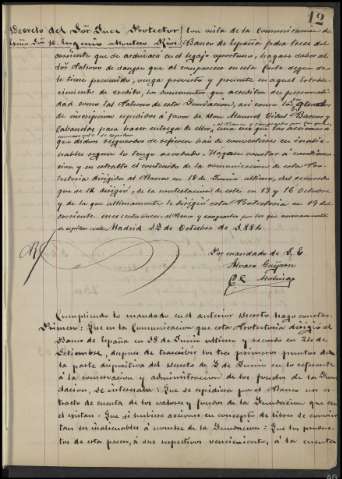 12
Decreto del Sor. Juez Protector
Con vista de la Comunicacion del
Eugenio Montero Rios
Banco de España fecha trece del
corriente que se archivará en el legajo oportuno, hágase saber al
Sor. Patrono de sangre que al
le tiene prevenido, venga provisto y presente en aquel Estable-
cimiento de credito, los documentos que acrediten su personali-
dad como tal Patrono de esta Fundacion, así como
de inscripcion expedidos á favor de Don Manuel Vidal
para hacer entrega de ellos, una vez que las acciones á
que dichos resguardos se refieren han de convertirse en inaliè-
nables segun lo tengo acordado. Hágase constar á continuacion
y en extracto el resultado de la comunicacion de esta Pro-
tectoria dirigida al Banco en 18 de Junio ultimo, del acuerdo
que se le dirigió, de la contestacion de este en 13 y 16 Octubre
y de la que ultimamente le dirigió esta Protectoria en 19 del
corriente
Madrid 22 de Octubre de 1881.
Por mandado de S. E.
Alvaro
Cumpliendo lo mandado en el anterior decreto hago constar:
Primero: Que en la Comunicacion que esta Protectoria dirigió al
Banco de España en 22 de Junio ultimo y recordó en 20 de
Setiembre, despues de trascribir los tres primeros puntos de
la parte dispositiva del decreto de 2 de Junio en lo referente
á la conservacion y administracion de los fondos de la Fun-
dacion, se interesaba: Que se expidiera por el Banco un ex-
tracto de cuenta de los valores y fondos de la Fundacion que en
el existan: Que si hubiere acciones en concepto de libres se convir-
tan en inalienables á nombre de la Fundacion: Que los produc-
tos de estas pasen, á sus respectivos vencimientos, á la cuenta